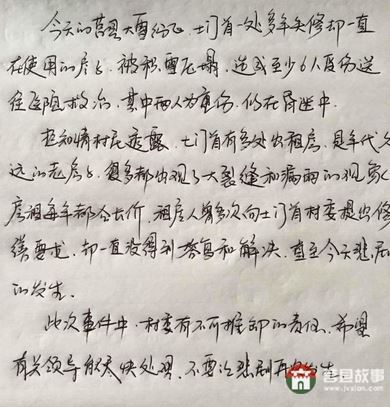 今天的莒县大雪纷飞,土门首一处多年失修却一直
在使用的房屋,被积雪压塌,造成至少6人受伤送
往医院救治,其中两人为重伤,仍在昏迷中.
据知情村民透露,土门首有多处出租房,是年代久
远的老房屋,更多都出现了大裂缝和漏雨的现象,
房租每年都会长价,租房人曾多次向土门首村委提出修
缮要求,却一直没得到答复和解决,直至今天悲剧
的发生.
此次事件中,村委有不可推卸的责任,希望
有关领导能尽快处理,不要让悲剧再次发生.
莒县故事
www.jvxian.com